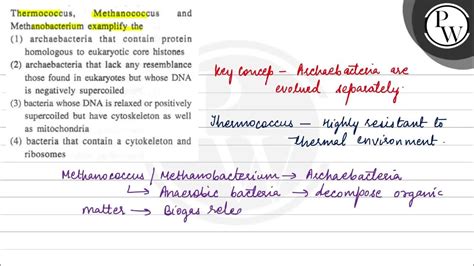 Thermococcus, Methanococcus and
Methanobacterium examplify the
(1) archaebacteria that contain protein
homologous to eukaryotic core histones
(2) archaebacteria that lack any resemblance
those found in eukaryotes but whose DNA
is negatively supercoiled
(3) bacteria whose DNA is relaxed or positively
supercoiled but have cytoskeleton as well
as mitochondria
(4) bacteria that contain a cytokeleton and
ribosomes
PW
Key Concep - Archaebacteria are
evolved separately.
Thermococcus - Highly resistant to
thermal environment.
Methanococcus / Methanobacterium → Archaebacteria
↳ Anaerobic bacteria → decompose organic
matter → Biogas reles